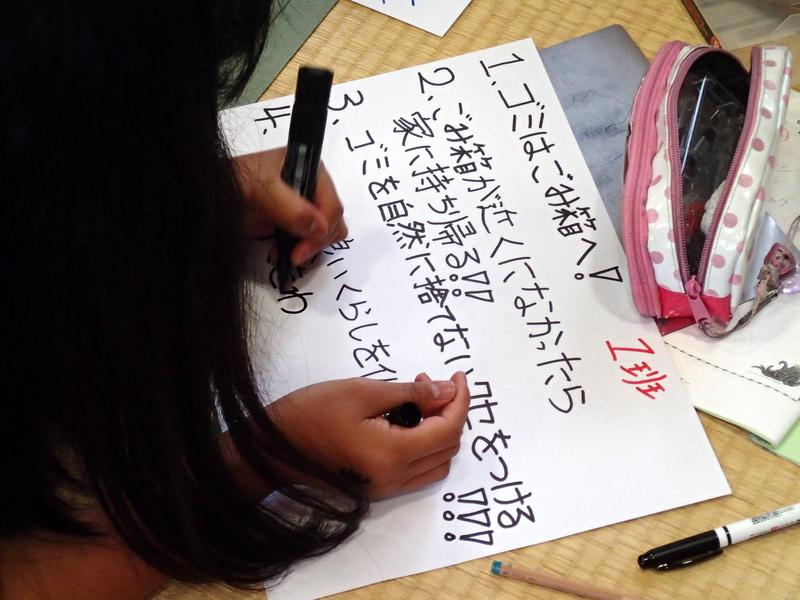 1班
1. ゴミはごみ箱へ!
2. ごみ箱が近くになかったら
家に持ち帰る!!
3. ゴミを自然に捨てないクセをつける!!!
4. いくらしを